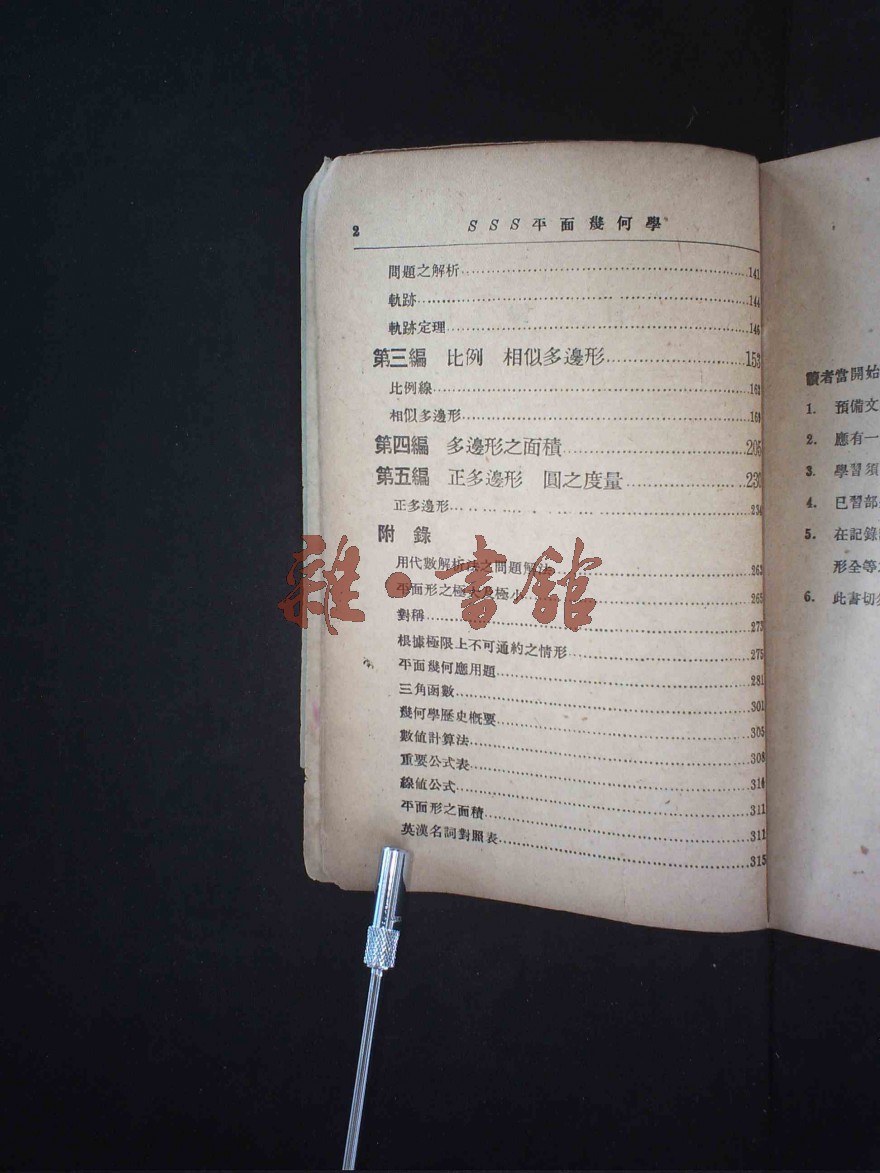 2 SSS平面幾何學
問題之解析 141
軌跡 144
軌跡定理 146
第三編 比例 相似多邊形 153
比例線 163
相似多邊形 168
第四編 多邊形之面積 205
第五編 正多邊形 圓之度量 230
正多邊形 234
附錄
用代數解析法之問題解法 263
平面形之極大及極小 265
對稱 273
根據極限上不可通約之情形 275
平面幾何應用題 281
三角函數 301
幾何學歷史概要 305
數值計算法 308
重要公式表 310
線值公式 311
平面形之面積 311
英漢名詞對照表 315
雜·書館
讀者當開始
1. 預備文
2. 應有一
3. 學習須
4. 已習部
5. 在記錄
形全等
6. 此書切